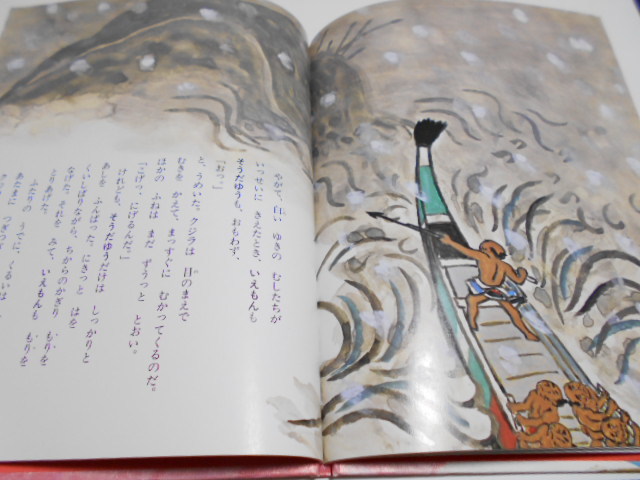 やがて、白い ゆきの むしたちが
いっせいに きえたとき、いえもんも
そうだゆうも、おもわず、
「おっ。」
と、うめいた。クジラは 目のまえで
むきを かえて、まっすぐに むかってくるのだ。
ほかの ふねは まだ ずうっと とおい。
「こげっ。にげるんだ。」
けれども、そうだゆうだけは しっかりと
あしを ふんばった。にきっと はを
くいしばりながら、ちからのかぎり もりを
なげた。それを みて、いえもんも もりを
とりあげた。
ふたりの うでに、くるいは
あたまに つぎつぎ